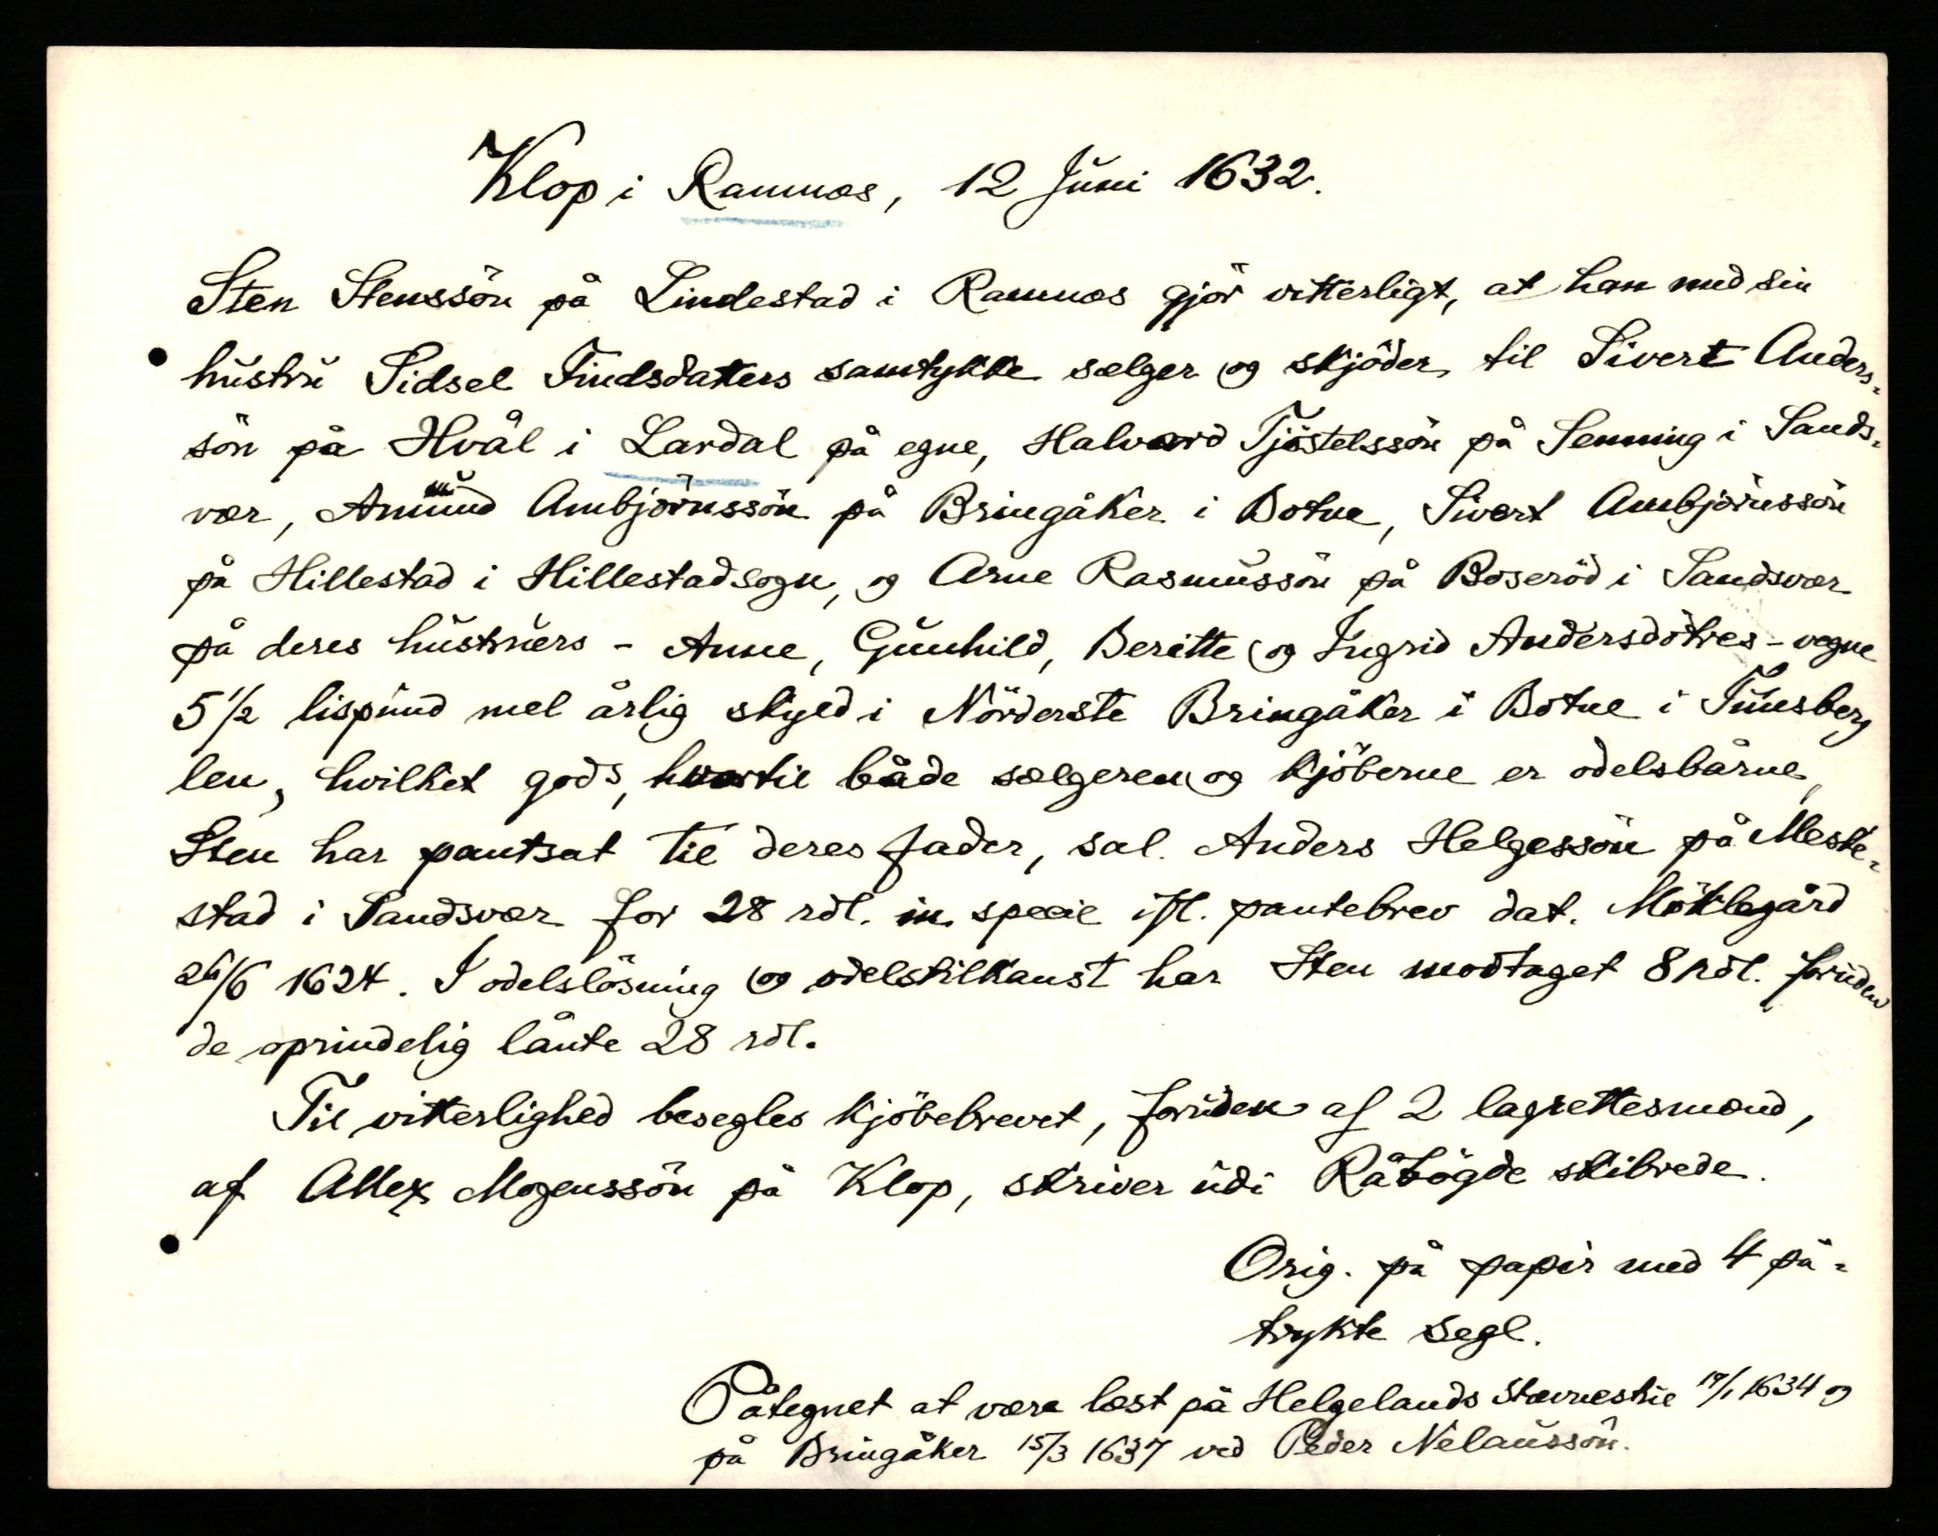 Klop i Ramnæs, 12 Juni 1632.
Sten Stenssön på Lindestad i Ramnæs gjör vitterligt, at han med sin
hustru Sidsel Findsdatters samtykke sælger og skjöder til Sivert Anders-
sön på Hvål i Lardal på egne, Halvard Tjöstelssön på Senning i Sands-
vær, Amund Ambjörnssön på Bringåker i Botne, Sivert Ambjörnssön
på Hillestad i Hillestad sogn, og Arne Rasmussön på Boseröd i Sandsvær
på deres hustruers - Anne, Gunhild, Beritte og Ingrid Andersdötres - vegne
5 1/2 lispund mel årlig skyld i Nörderste Bringåker i Botne i Tunsberg
len, hvilket gods, hvortil både sælgeren og kjöberne er odelsbårne,
Sten har pantsat til deres fader, sal. Anders Helgessön på Meste-
stad i Sandsvær for 28 rdl. in specie ifl. pantebrev dat. Möklegård
26/6 1624. I odelslösning og odelstilkanst har Sten modtaget 8 rdl. foruden
de oprindelig lånte 28 rdl.
Til vitterlighed besegles kjöbebrevet, foruden af 2 lagrettesmænd,
af Allex Mogenssön på Klop, skriver udi Råbögde skibrede.
Orig. på papir med 4 på-
trykte segl.
Påtegnet at være læst på Helgelands stævnestue 17/1 1634 og
på Bringåker 15/3 1637 ved Peder Nelaussön.